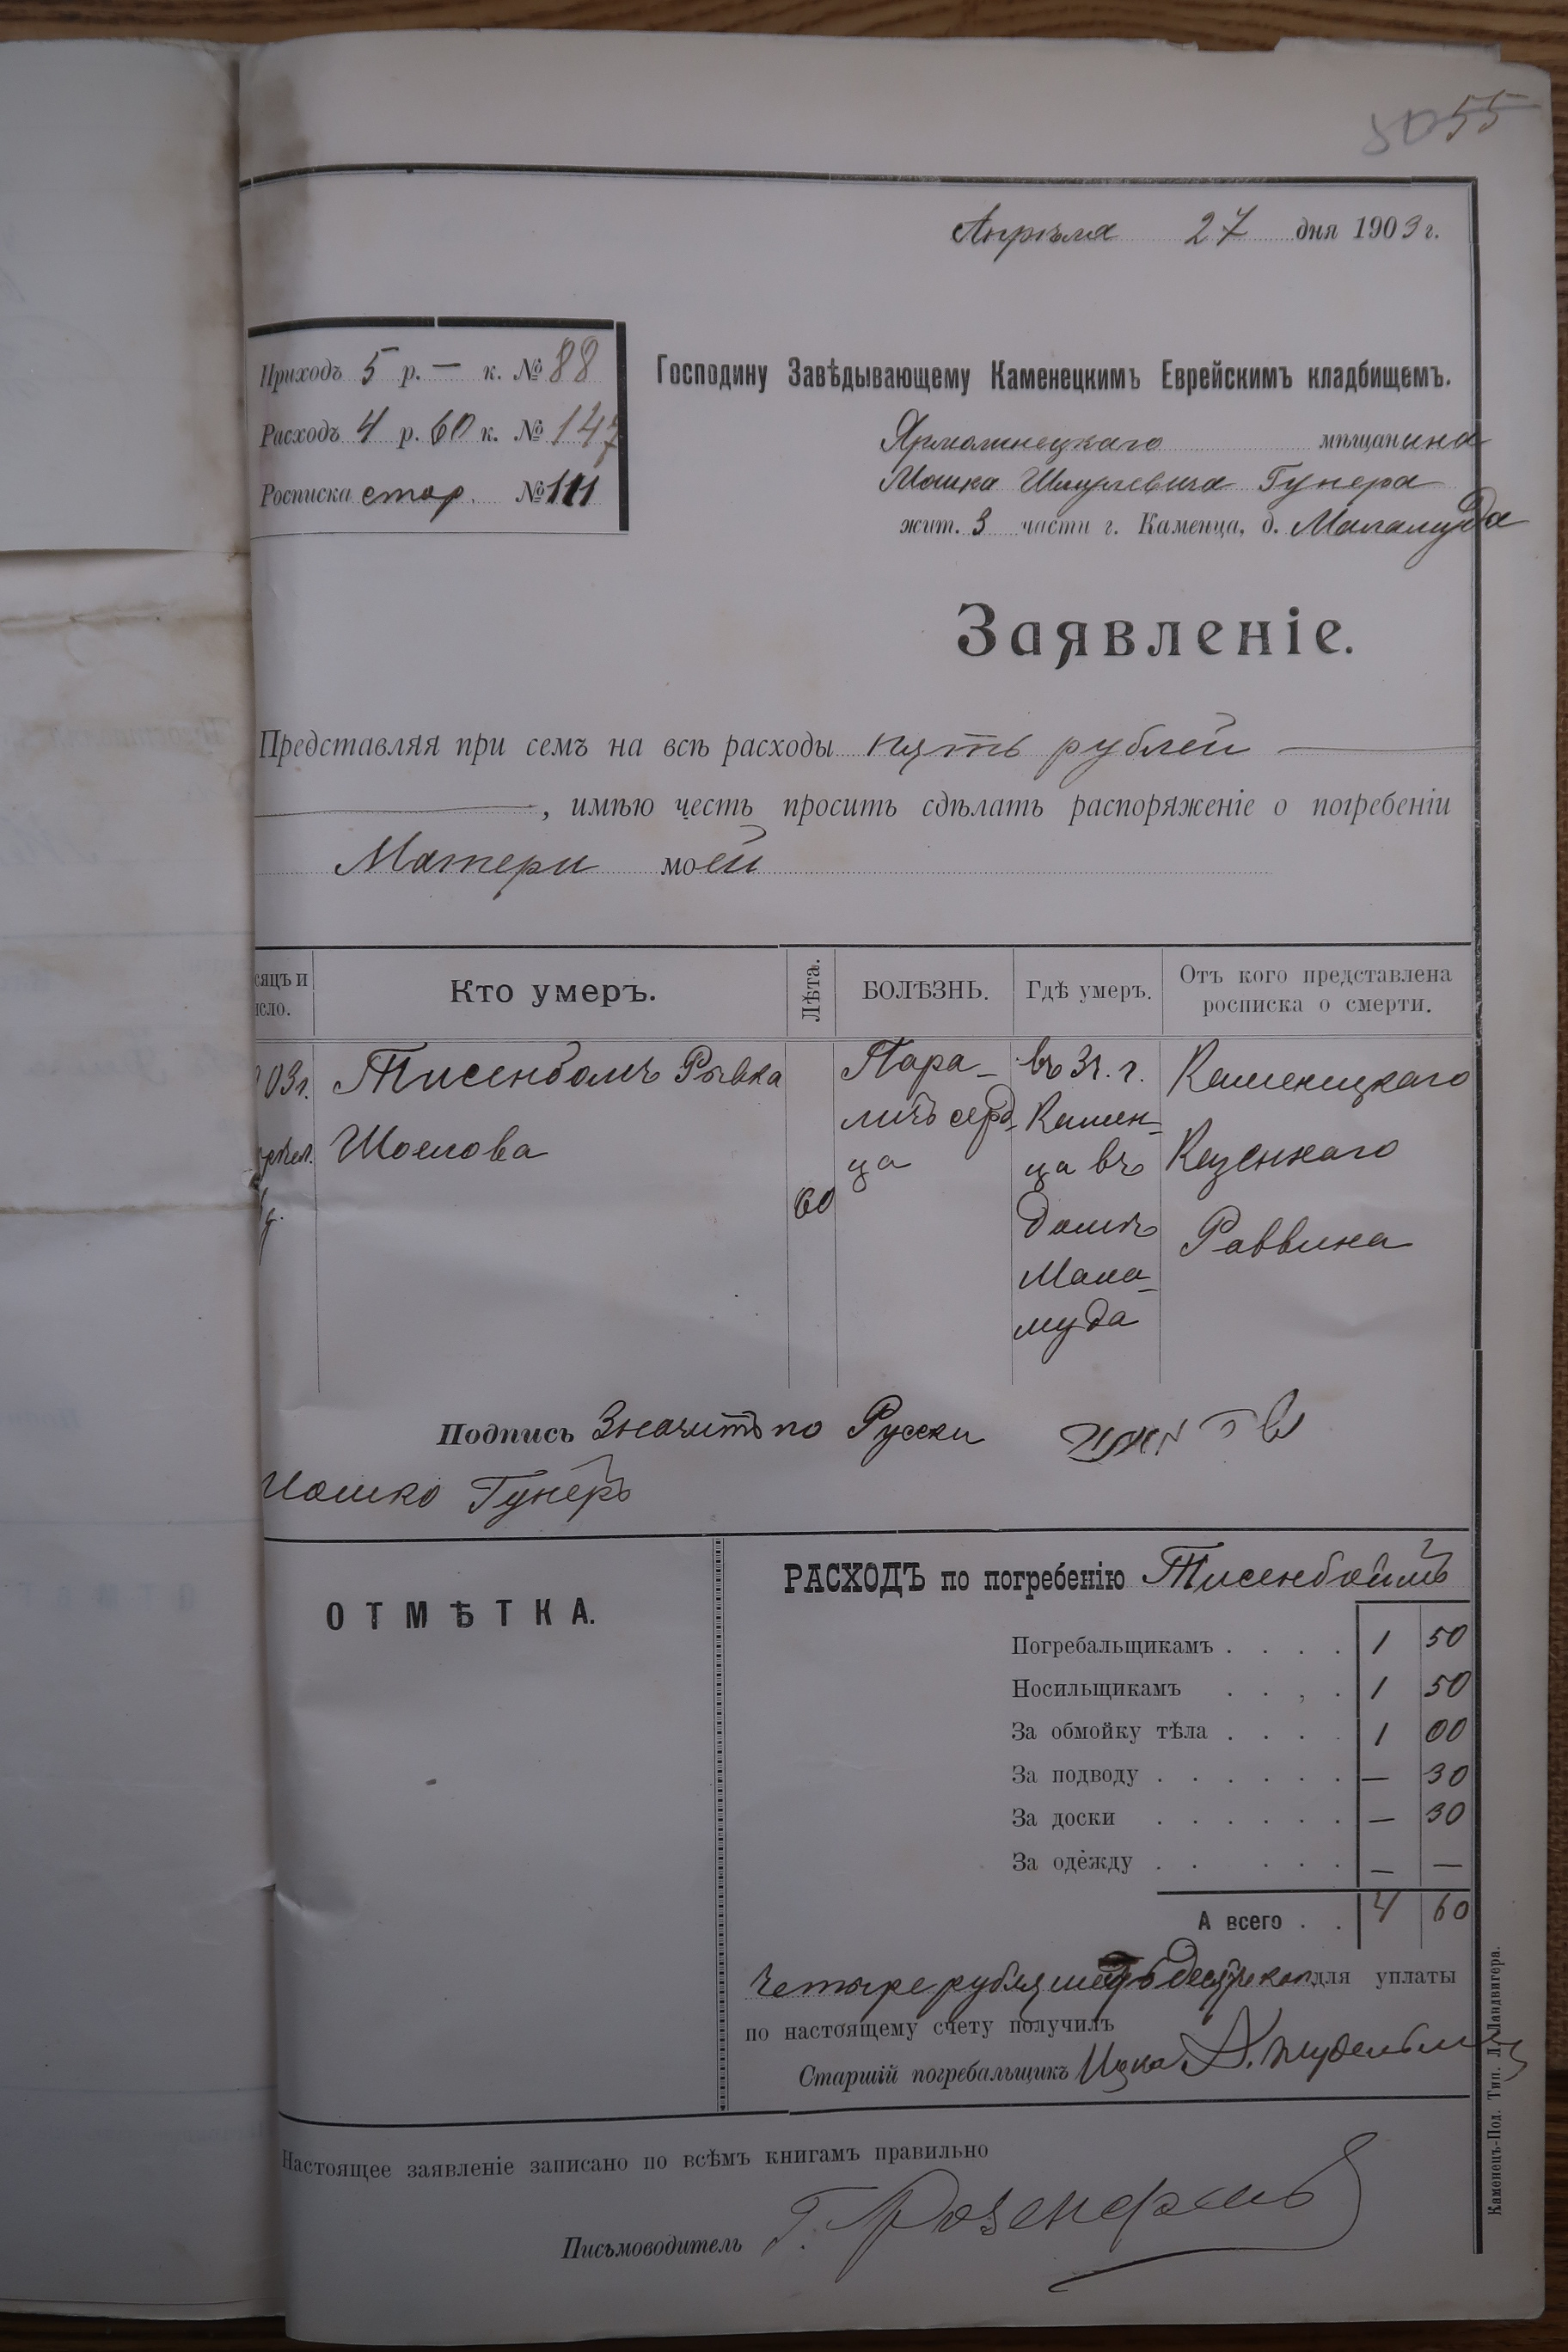 50 55
Апрѣля 27 дня 1903 г.
Приходъ 5 р. — к. № 88
Расходъ 4 р. 60 к. № 147
Росписка стар. № 111
Господину Завѣдывающему Каменецкимъ Еврейскимъ кладбищемъ.
Ярмолинецкаго мѣщанина
Иошка Шмулевича Гунера
жит. 3 части г. Каменца, д. Маламуда
Заявленіе.
Представляя при семъ на всѣ расходы пять рублей —
—, имѣю честь просить сдѣлать распоряженіе о погребеніи
Матери моей
сяцъ и
исло.
Кто умеръ.
Лѣта.
БОЛѢЗНЬ.
Гдѣ умеръ.
Отъ кого представлена
росписка о смерти.
03 г.
Тисенбомъ Рывка
Шоелова
60
Пара-
личъ серд-
ца
въ 3 ч. г.
Камен-
ца въ
домѣ
Мала-
муда
Каменецкаго
Казеннаго
Раввина
Подпись Значитъ по Русски
Иошко Гунеръ
ОТМѢТКА.
РАСХОДЪ по погребенію Тисенбоимъ
Погребальщикамъ . . . . 1 50
Носильщикамъ . . , . 1 50
За обмойку тѣла . . . . 1 00
За подводу . . . . . . — 30
За доски . . . . . . — 30
За одежду . . . . . — —
А всего . . 4 60
Четыре рубля шестьдесят коп для уплаты
по настоящему счету получилъ
Старшій погребальщикъ Ицка
Настоящее заявленіе записано по всѣмъ книгамъ правильно
Письмоводитель Г. Розенфельд
Каменецъ-Под. Тип. Л. Ландвигера.